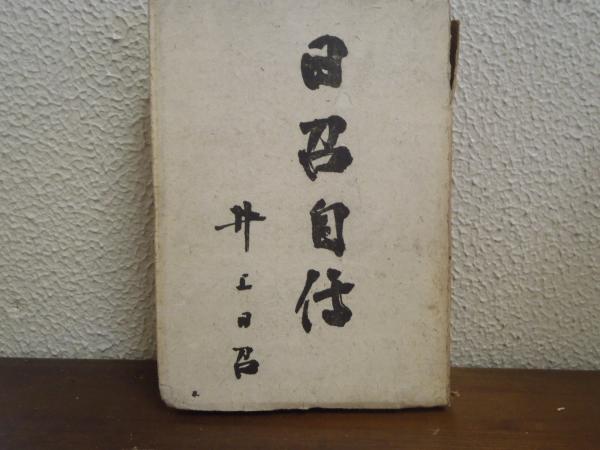 日召自伝
井上日召